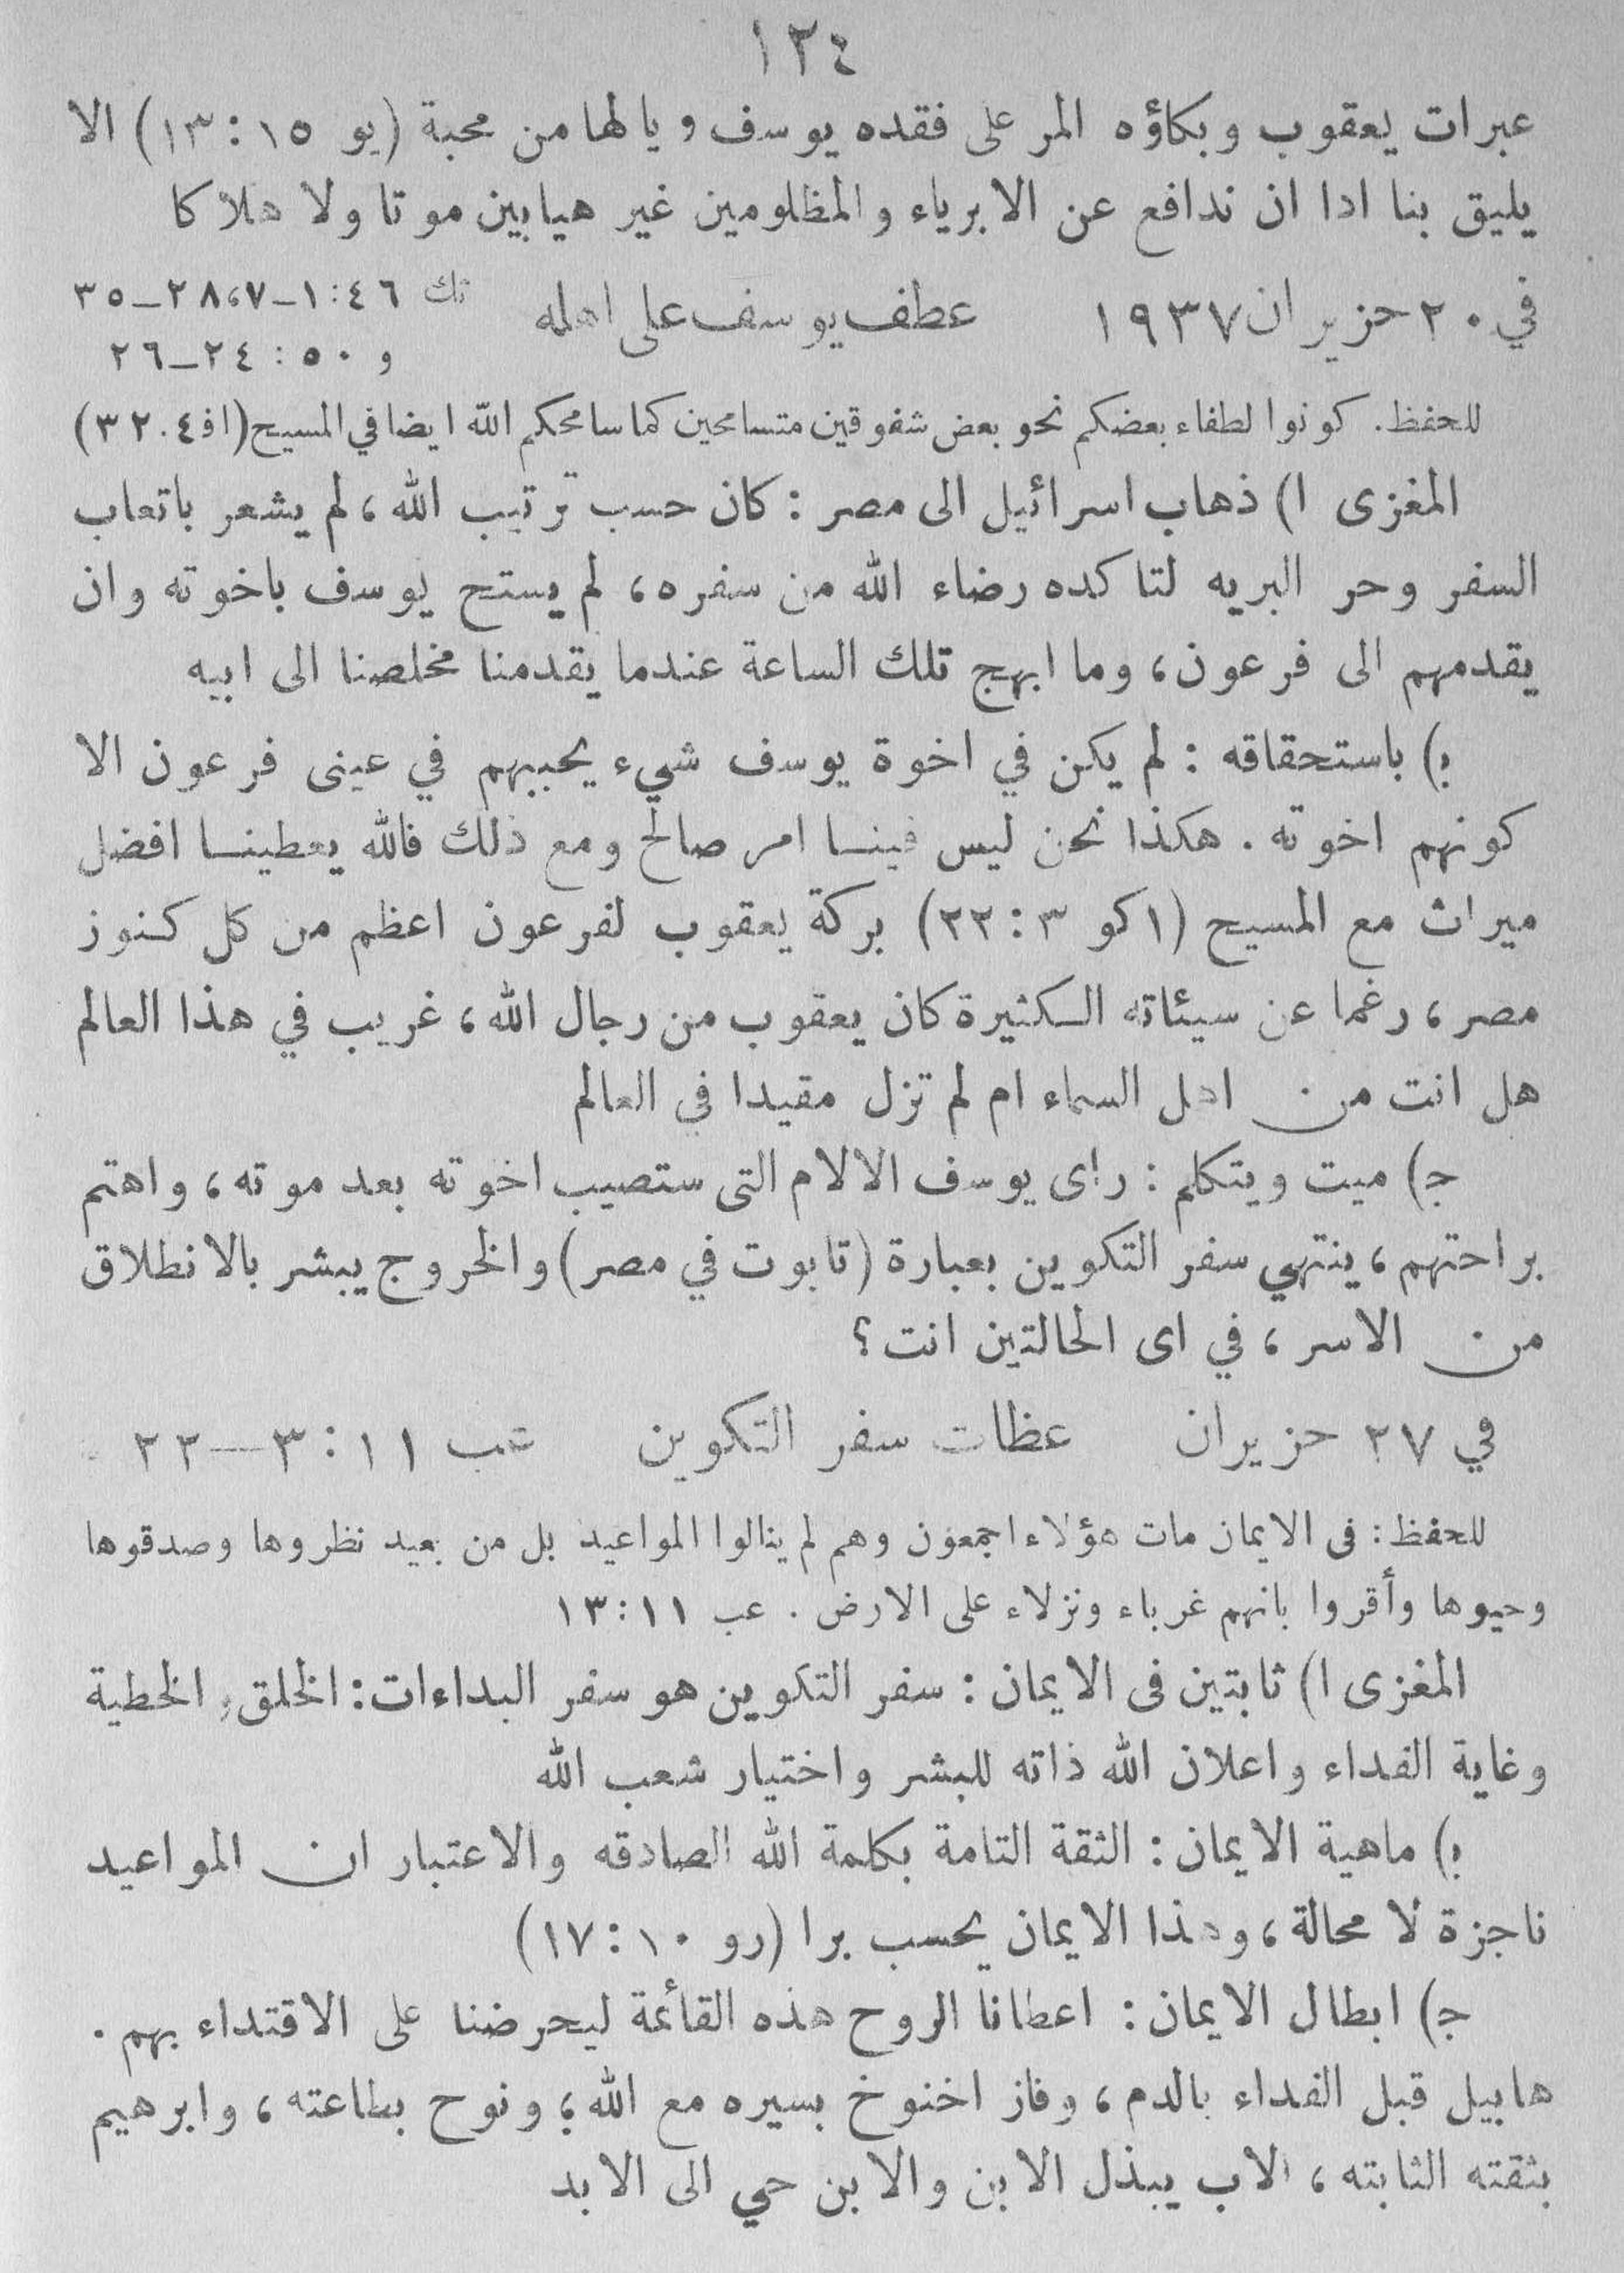 ١٢٤
عبرات يعقوب وبكاؤه المر على فقده يوسف ويالها من محبة (يو ١٥:١٣) الا
يليق بنا اذا ان ندافع عن الابرياء والمظلومين غير هيابين موتا ولا هلاكا
في ٢٠ حزيران ١٩٣٧ عطف يوسف على اهله تك ٤٦:١-٧،٢٨-٣٥
و ٥٠:٢٤-٢٦
للحفظ. كونوا لطفاء بعضكم نحو بعض شفوقين متسامحين كما سامحكم الله ايضا في المسيح (اف ٤.٣٢)
المغزى ا) ذهاب اسرائيل الى مصر: كان حسب ترتيب الله، لم يشعر باتعاب
السفر وحر البريه لتاكده رضاء الله من سفره، لم يستح يوسف باخوته وان
يقدمهم الى فرعون، وما ابهج تلك الساعة عندما يقدمنا مخلصنا الى ابيه
ب) باستحقاقه: لم يكن في اخوة يوسف شيء يحببهم في عينى فرعون الا
كونهم اخوته. هكذا نحن ليس فينا امر صالح ومع ذلك فالله يعطينا افضل
ميراث مع المسيح (١كو ٣:٢٢) بركة يعقوب لفرعون اعظم من كل كنوز
مصر، رغما عن سيئاته الكثيرة كان يعقوب من رجال الله، غريب في هذا العالم
هل انت من اهل السماء ام لم تزل مقيدا في العالم
ج) ميت ويتكلم: راى يوسف الالام التى ستصيب اخوته بعد موته، واهتم
براحتهم، ينتهي سفر التكوين بعبارة (تابوت في مصر) والخروج يبشر بالانطلاق
من الاسر، في اى الحالتين انت؟
في ٢٧ حزيران عظات سفر التكوين عب ١١:٣-٢٢
للحفظ: فى الايمان مات هؤلاء اجمعون وهم لم ينالوا المواعيد بل من بعيد نظروها وصدقوها
وحيوها وأقروا بانهم غرباء ونزلاء على الارض. عب ١١:١٣
المغزى ا) ثابتين فى الايمان: سفر التكوين هو سفر البداءات: الخلق، الخطية
وغاية الفداء واعلان الله ذاته للبشر واختيار شعب الله
ب) ماهية الايمان: الثقة التامة بكلمة الله الصادقه والاعتبار ان المواعيد
ناجزة لا محالة، وهذا الايمان يحسب برا (رو ١٠:١٧)
ج) ابطال الايمان: اعطانا الروح هذه القأئمة ليحرضنا على الاقتداء بهم.
هابيل قبل الفداء بالدم، وفاز اخنوخ بسيره مع الله؛ ونوح بطاعته، وابرهيم
بثقته الثابته، الاب يبذل الابن والابن حي الى الابد